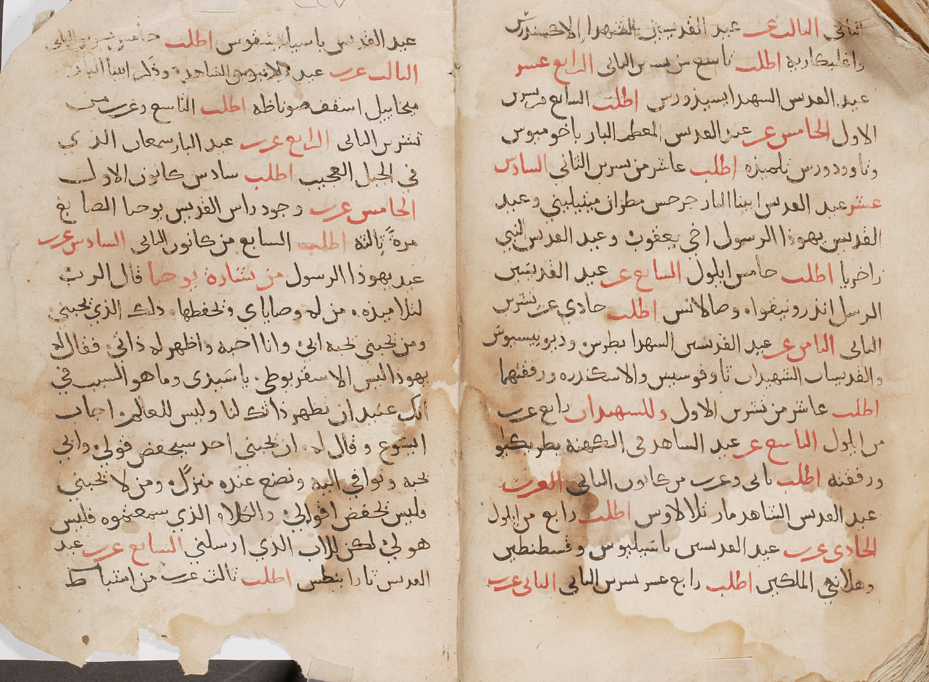 الثاني الثالث عشر عيد القديسين الشهدا الاكسندرس
واغليكاريه اطلب تاسع من تشرين الثاني الرابع عشر
عيد القديس الشهيد ايسيذورس اطلب السابع تشرين
الاول الخامس عشر عيد القديس المعظم البار باخوميوس
وتاودورس تلميذه اطلب عاشر من تشرين الثاني السادس
عشر عيد القديس ابينا البار جرجس مطران ميتيليني وعيد
القديس يهوذا الرسول اخي يعقوب وعيد القديس النبي
زاخريا اطلب خامس ايلول السابع عشر عيد القديسين
الرسل اندرونيقوا اطلب حادي عشر تشرين
الثاني الثامن عشر عيد القديسين الشهدا بطرس وديونيسيوس
والقديسات الشهيدات ورفقتهما
اطلب عاشر من تشرين الاول وللشهيدات رابع عشر
من ايلول التاسع عشر عيد الشاهد في الكهنة بطريكيوس
ورفقته اطلب ثاني وعشر من كانون الثاني العشرين
عيد القديس الشاهد مار ثلالاوس اطلب رابع من ايلول
الحادي عشرين عيد القديسين باسيليوس وقسطنطين
وهلاني الملكين اطلب رابع عشر تشرين الثاني الثاني عشرين
عيد القديس باسيليسقوس اطلب خامس تشرين الثاني
الثالث عشرين عيد الشاهد وذكر ابينا البار
ميخاييل اسقف صوناظه اطلب التاسع وعشرين من
تشرين الثاني الرابع عشرين عيد البار سمعان الذي
في الجبل العجيب اطلب سادس كانون الاول
الخامس عشرين وجود راس القديس يوحنا الصابغ
مرة ثالثة اطلب السابع من كانون الثاني السادس عشرين
عيد يهوذا الرسول من بشارة يوحنا قال الرب
لتلاميذه من له وصاياي ويحفظها ذلك الذي يحبني
ومن يحبني يحبه ابي وانا احبه واظهر له ذاتي فقال له
يهوذا ليس الاسخريوطي يا سيدي وما هو السبب في
انك عتيد ان تظهر ذاتك لنا وليس للعالم اجاب
ايسوع وقال له ان يحبني احد سيحفض قولي وابي
يحبه ونوافي اليه ونصنع عنده منزلا ومن لا يحبني
فليس يحفض اقوالي والكلام الذي سمعتموه فليس
هو لي لكن للاب الذي ارسلني السابع عشرين عيد
القديس ثارابنطس اطلب ثالث عشرين من اشباط